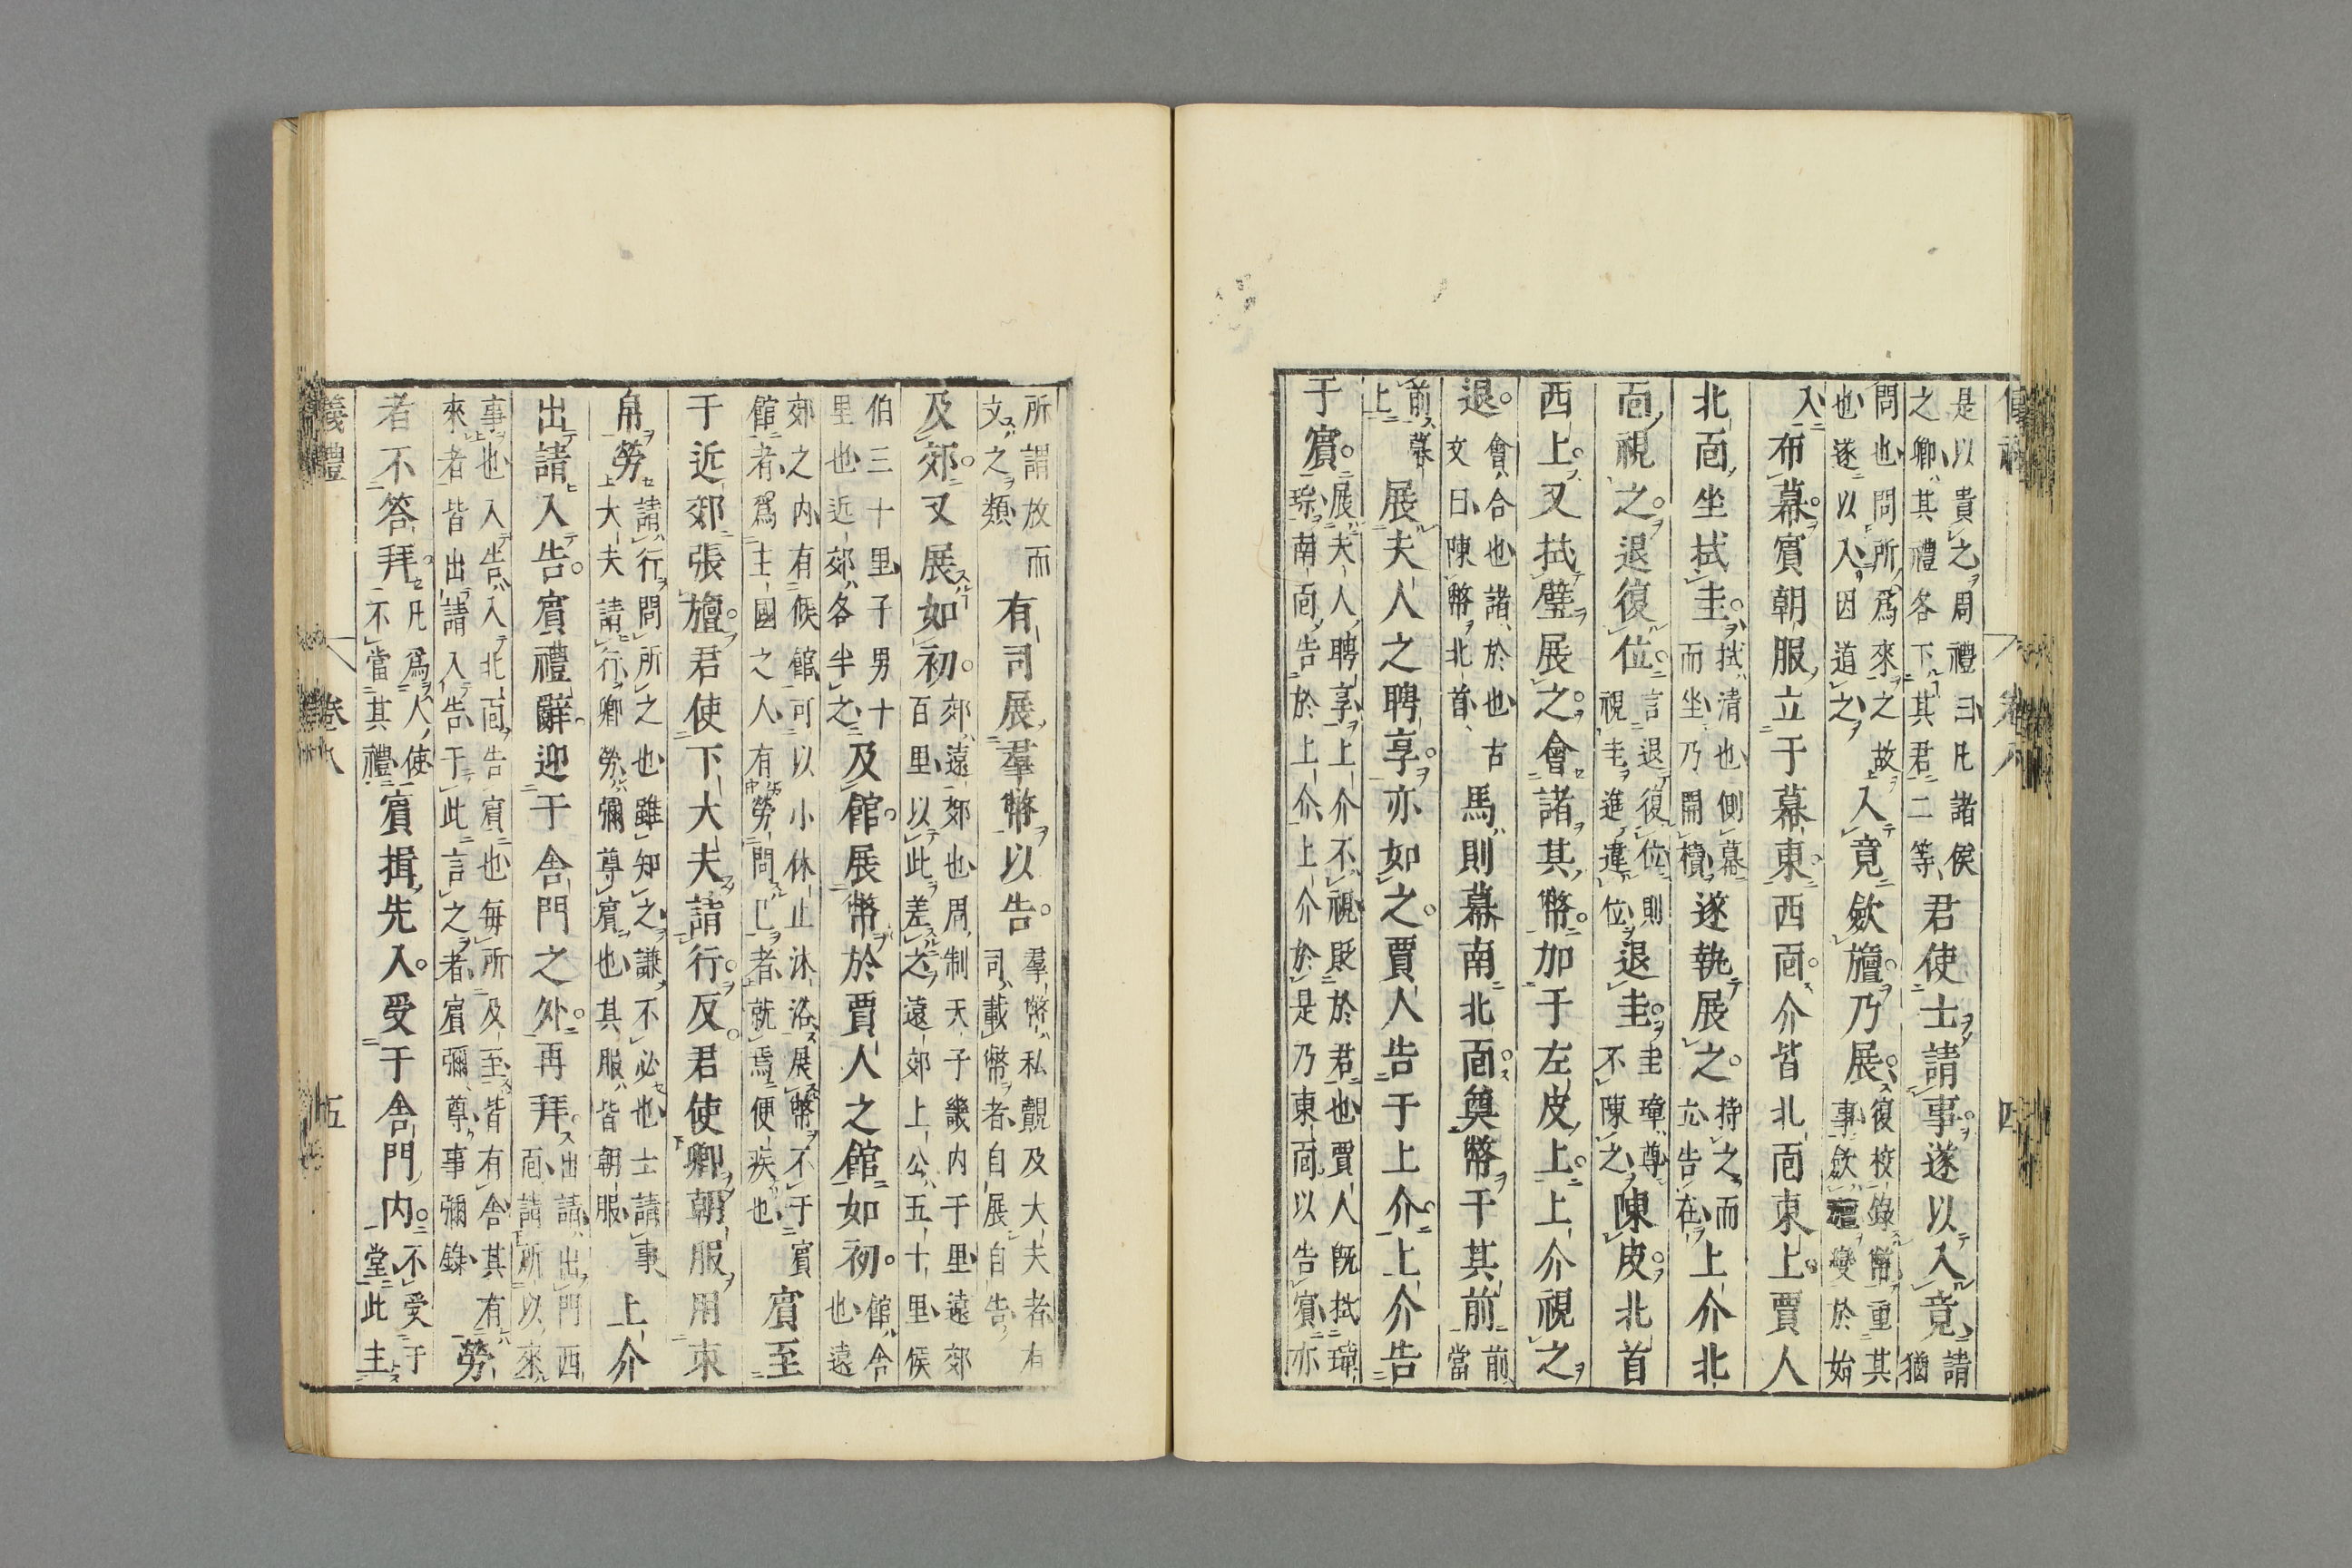 是以貴之周禮曰凡諸侯
之卿其禮各下其君二等
君使士請事遂以入竟
請
猶
問也問所爲來之故
也遂以入因道之
入竟斂旜乃展
復校錄幣重其
事斂旜變於始
入
布幕賓朝服立于幕東西面介皆北面東上賈人
北面坐拭圭
拭清也側幕
而坐乃開櫝
遂執展之
持之而
立告在
上介北
面視之退復位
言退復位則
視圭進違位
退圭
圭璋尊
不陳之
陳皮北首
西上又拭璧展之會諸其幣加于左皮上上介視之
退
會合也諸於也古
文曰陳幣北首
馬則幕南北面奠幣于其前
前
當
前幕
上
展夫人之聘享亦如之賈人告于上介上介告
于賓
展夫人聘享上介不視貶於君也賈人既拭璋
琮南面告於上介上介於是乃東面以告賓亦
所謂放而
文之類
有司展羣幣以告
羣幣私覿及大夫者有
司載幣者自展自告
及郊又展如初
郊遠郊也周制天子畿内千里遠郊
百里以此差之遠郊上公五十里侯
伯三十里子男十
里也近郊各半之
及館展幣於賈人之館如初
館舍
也遠
郊之内有候館可以小休止沐浴展幣不于賓
館者爲主國之人有勞問已者就焉便疾也
賓至
于近郊張旜君使下大夫請行反君使卿朝服用束
帛勞
請行問所之也雖知之謙不必也士請事
大夫請行卿勞彌尊賓也其服皆朝服
上介
出請入告賓禮辭迎于舍門之外再拜
出請出門西
面請所以來
事也入告入北面告賓也每所及至皆有舍其有
來者皆出請入告于此言之者賓彌尊事彌錄
勞
者不答拜
凡爲人使
不當其禮
賓揖先入受于舍門内
不受于
堂此主
儀禮 卷八 五